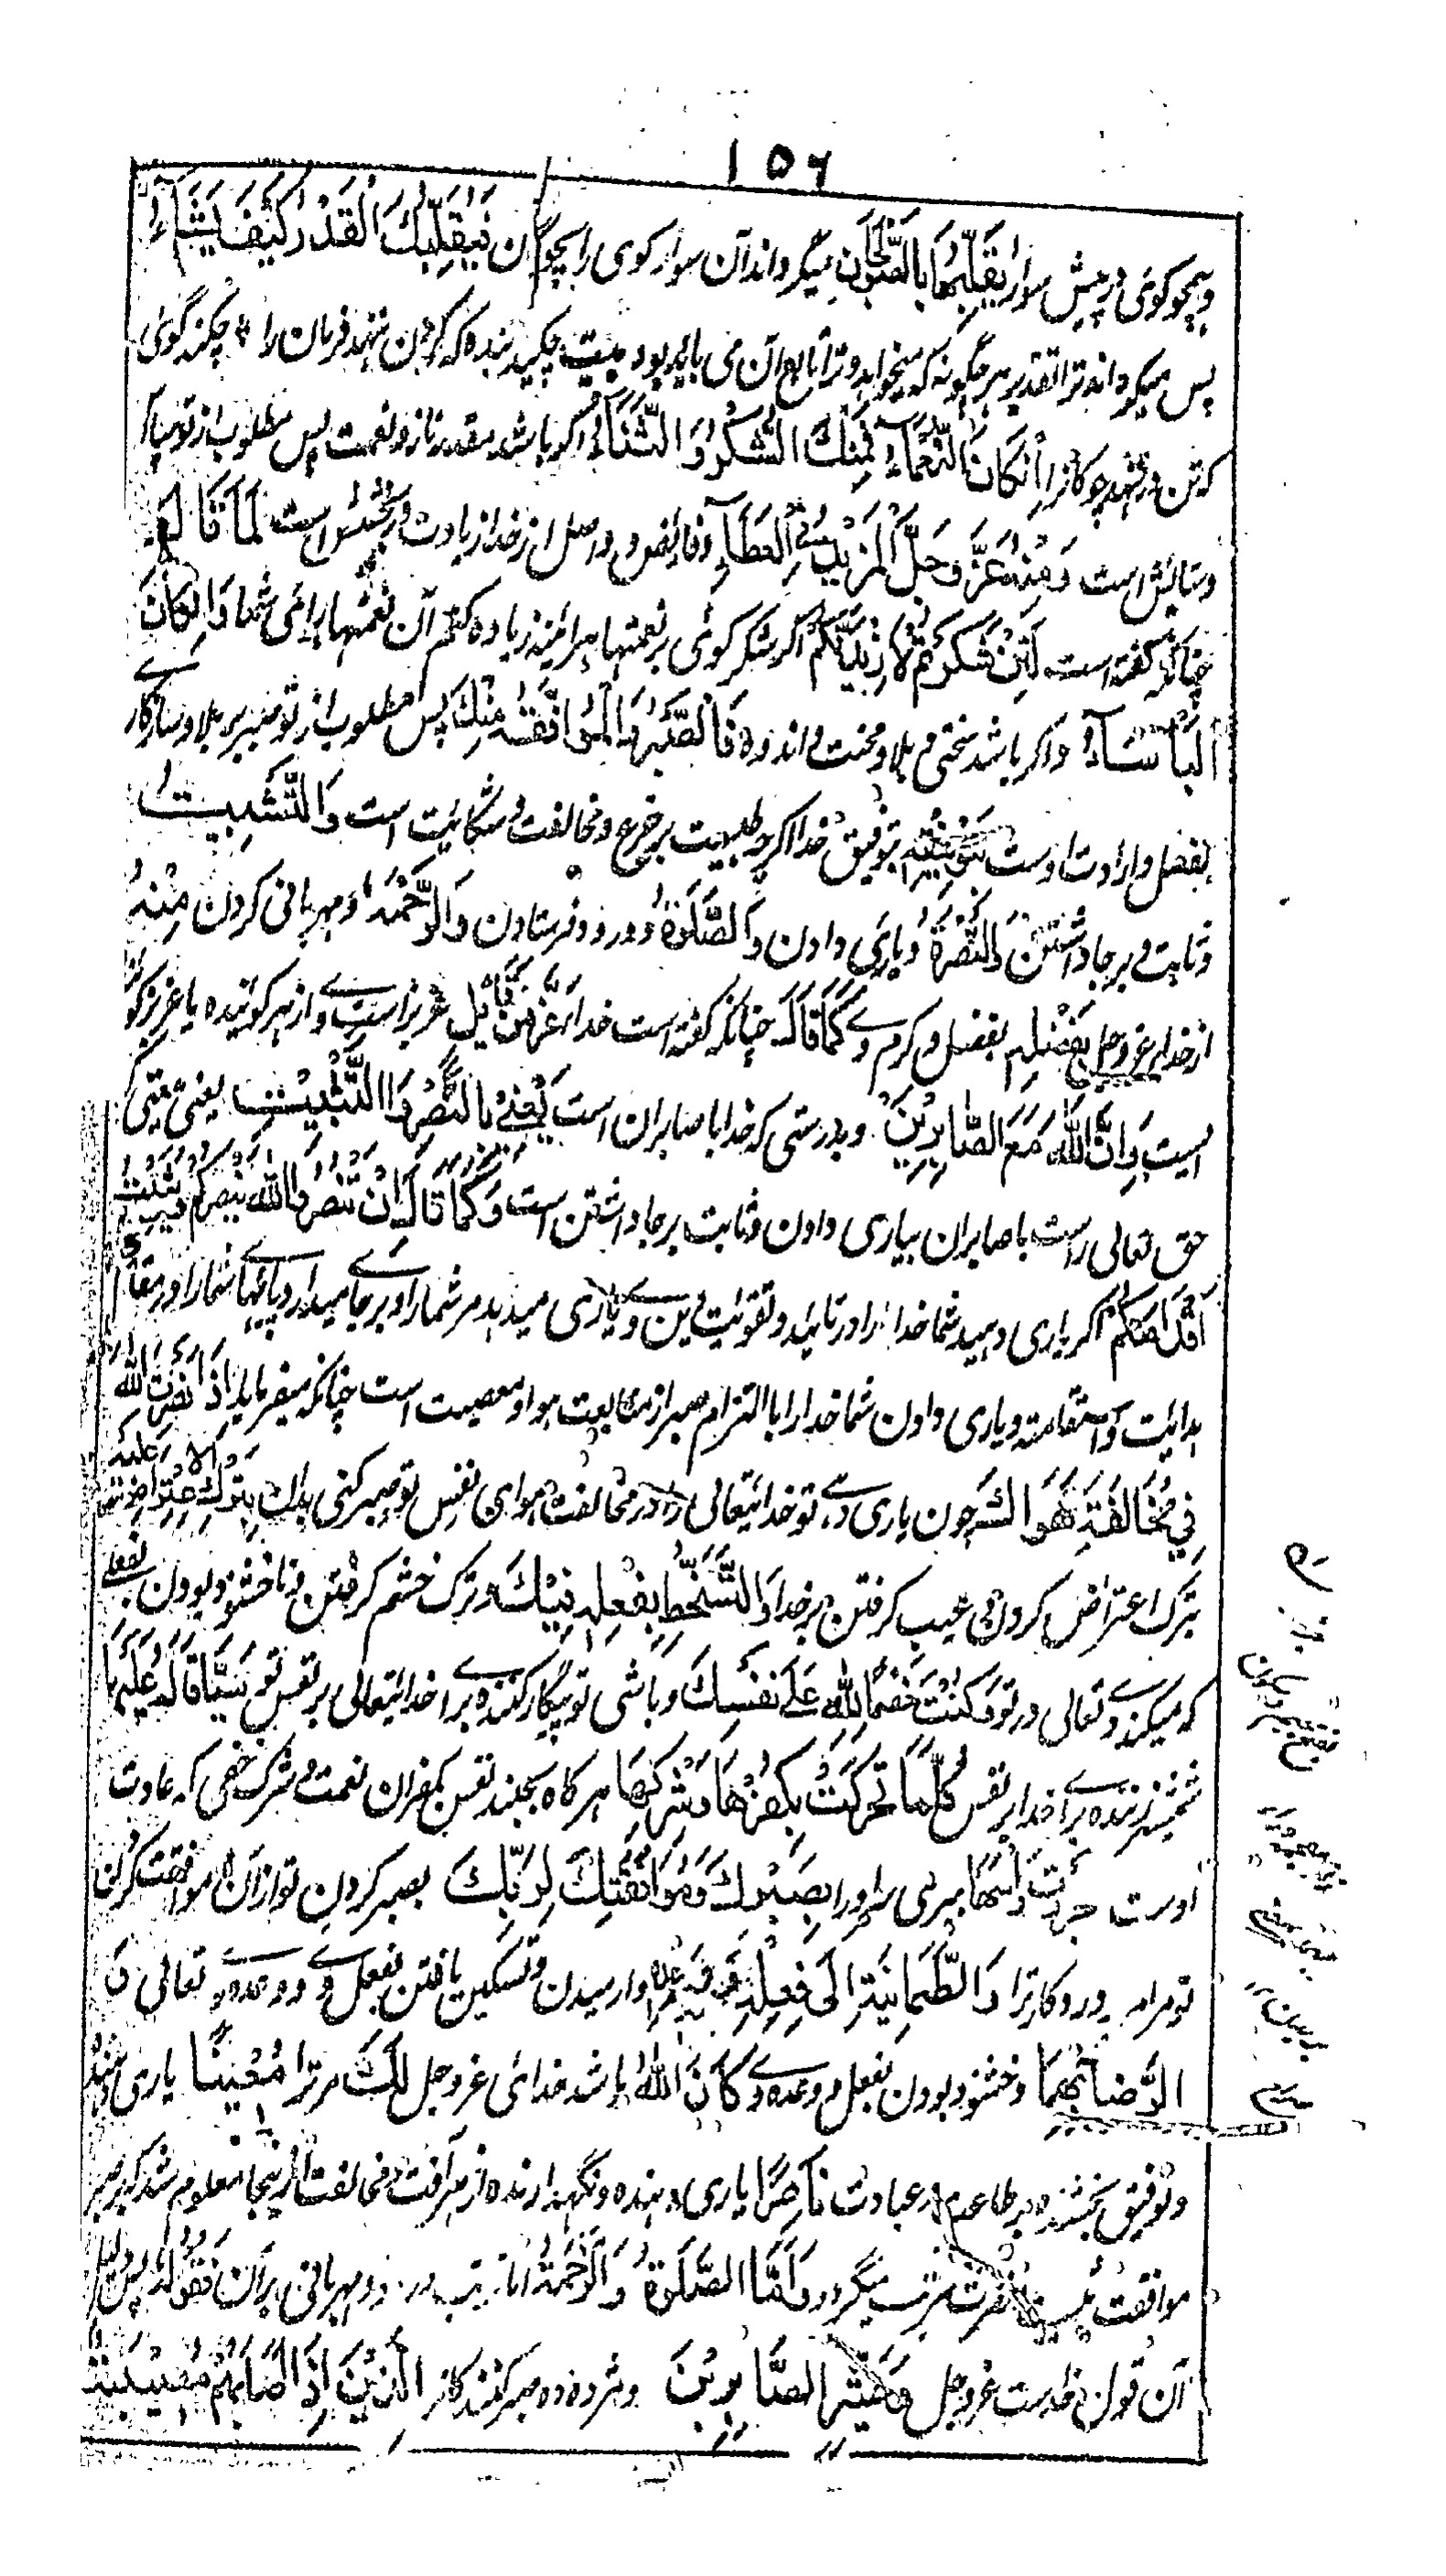 ۱۵۶
وہمچو کوئی در پیش سوار یُقَلِّبُهَا بِالصَّوْلَجَانِ میگرداند آن سوار کوی را بچوگان فَيُقَلِّبُكَ الْقَدْرُ كَيْفَ يَشَآءُ
پس میگرداند ترا تقدیر ہر چگونہ کہ میخواہد و ترا تابع آن می باید بود بیت چکند بندہ کہ گردن ننہد فرمان را ٭ چکند گوی
کہ تن در ندہد چوگان را اِنْ كَانَ النَّعْمَآءُ فَمِنْكَ الشُّكْرُ وَالثَّنَآءُ اگر باشد مقدر ناز و نعمت پس مطلوب از تو سپاس
و ستایش است وَمِنْهُ عَزَّ وَجَلَّ الْمَزِيْدُ فِي الْعَطَآءِ و فائض و در اصل از خدا زیادت در بخشش است كَمَا قَالَ
چنانکہ گفتہ است لَئِنْ شَكَرْتُمْ لَاَزِيْدَنَّكُمْ اگر شکر گوئی بر نعمتہا ہر آئینہ زیادہ کنم آن نعمتہا برای شما وَاِنْ كَانَ
الْبَأْسَآءُ و اگر باشد سختی و بلا و محنت و اندوہ فَالصَّبْرُ وَالْمُوَافَقَةُ مِنْكَ پس مطلوب از تو صبر بر بلا و سازگاری
بفضل و ارادت اوست بِتَوْفِيْقِهِ بتوفیق خدا اگرچہ طبیعت بر جزع و مخالفت و شکایت است وَالتَّثْبِيْتُ
و ثابت و برجا داشتن وَالنُّصْرَةُ و یاری دادن وَالصَّلٰوةُ و درود فرستادن وَالرَّحْمَةُ و مہربانی کردن مِنْهُ
از خدای عز و جل بِفَضْلِهِ بفضل و کرم وے كَمَا قَالَ چنانکہ گفتہ است خدا عَزَّ مِنْ قَائِلٍ عزیز است وے از ہر گویندہ یا عزیز گو
یست اِنَّ اللهَ مَعَ الصَّابِرِيْنَ و بدرستی کہ خدا با صابران است يَعْنِيْ بِالنَّصْرِ وَالتَّثْبِيْتِ یعنی معیتی کہ
حق تعالی راست با صابران بیاری دادن و ثابت برجا داشتن است وَكَمَا قَالَ اِنْ تَنْصُرُوا اللهَ يَنْصُرْكُمْ وَيُثَبِّتْ
اَقْدَامَكُمْ اگر یاری دہید شما خدا را در تائید و تقویت دین وے یاری میدہد مر شما را و برجا میدارد پایہا شما را در مقام
ہدایت و استقامت و یاری دادن شما خدا را با التزام صبر از متابعت ہوا و معصیت است چنانکہ میفرماید اِذَا نَصَرْتَ اللهَ
فِيْ مُخَالَفَةِ هَوَاكَ چون یاری دہی تو خدایتعالی را در مخالفت ہوای نفس تو صبر کنی بدان بِتَرْكِ الْاِعْتِرَاضِ عَلَيْهِ
بترک اعتراض کردن و عیب گرفتن بر خدا وَالتَّسَخُّطِ بِفِعْلِهِ فِيْكَ و ترک خشم گرفتن و ناخشنود بودن بفعلے
کہ میکند وے تعالی در تو وَكُنْتَ خَصْمًا لِلّٰهِ عَلٰى نَفْسِكَ و باشی تو پیکار کنندہ برای خدایتعالی بر نفس تو سَيَّافًا عَلَيْهَا
شمشیر زنندہ برای خدا بر نفس كُلَّمَا تَحَرَّكَتْ بِكُفْرِهَا وَشِرْكِهَا ہر گاہ بجنبد نفس بکفران نعمت و شرک خفی کہ عادت
اوست جَزَزْتَ رَأْسَهَا ببری سر او را بِصَبْرِكَ وَمُوَافَقَتِكَ لِرَبِّكَ بصبر کردن تو از آن و موافقت کردن
تو مر پروردگار ترا وَالطُّمَانِيْنَةِ اِلٰى فِعْلِهِ وَوَعْدِهِ و آرمیدن و تسکین یافتن بفعل وے و وعدہ وے تعالی وَ
الرِّضَا بِهِمَا و خشنود بودن بفعل و وعدہ وے كَانَ اللهُ باشد خدائی عز و جل لَكَ مر ترا مُعِيْنًا یاری دہندہ
و توفیق بخشندہ بر طاعت و عبادت نَاصِرًا یاری دہندہ و نگہدارندہ از ہر آفت و مخالفت ازینجا معلوم شد کہ بر صبر
موافقت نصرت مترتب میگردد وَاَمَّا الصَّلٰوةُ وَالرَّحْمَةُ اما ترتب درود و مہربانی بران فَقَوْلُهُ پس دلیل
آن قول خداست عز و جل وَبَشِّرِ الصَّابِرِيْنَ و مژدہ دہ صبر کنندگان الَّذِيْنَ اِذَا اَصَابَتْهُمْ مُصِيْبَةٌ